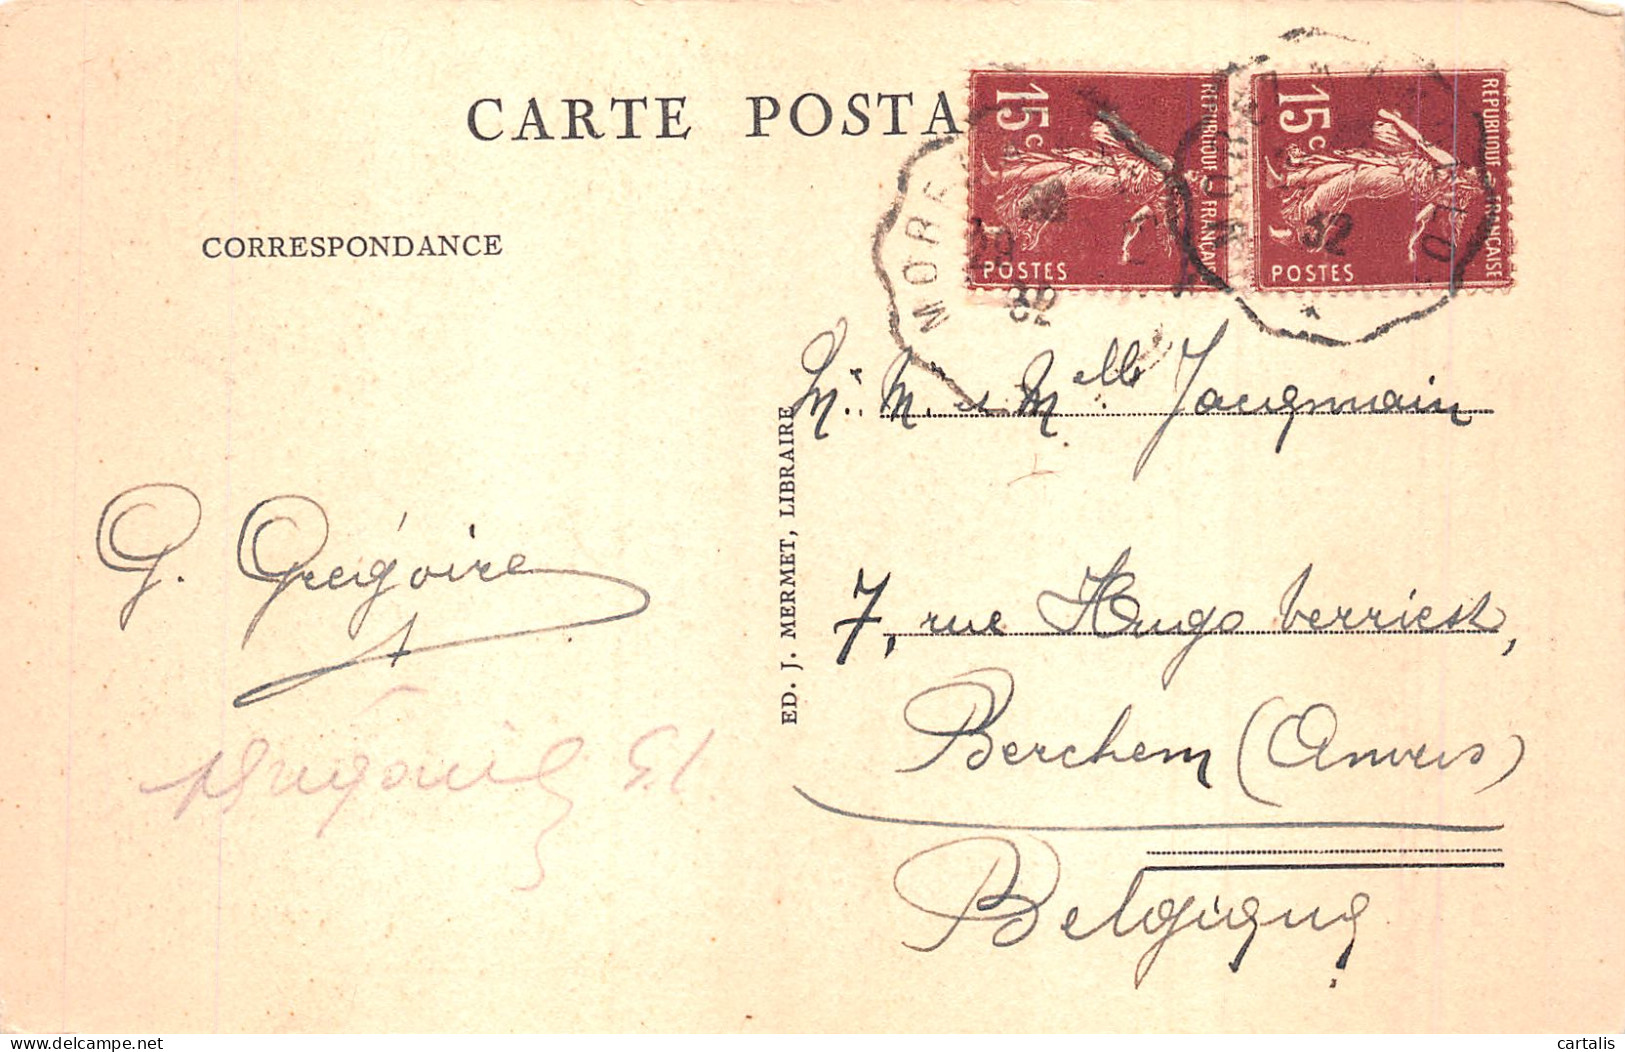 CARTE POSTA
15c
REPUBLIQUE FRANÇAISE
POSTES
15c
REPUBLIQUE FRANÇAISE
POSTES
MORE
32
CORRESPONDANCE
Mr. M. et Melle Jacqmain
G. Grégoire
7, rue Hugo Verriest,
Berchem (Anvers)
Belgique
ED. J. MERMET, LIBRAIRE
delcampe.net
cartalis